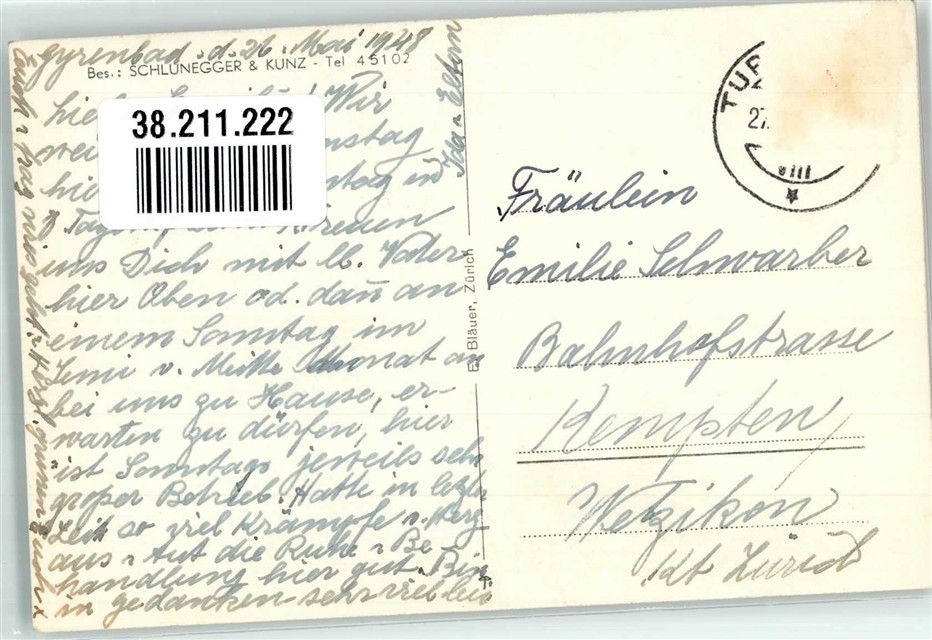 Gyrenbad d. 26. Mai 1948
Bes.: SCHLUNEGGER & KUNZ - Tel 45102
Wir
38.211.222
hier
8 Tag
uns Dich mit lb. Vater
hier Oben od. dañ an
einem Sonntag im
v. Mitte Monat an
bei uns zu Hause, er-
warten zu dürfen, hier
ist Sonntags jeweils sehr
großer Betrieb. Hatte in letzter
Zeit so viel Krämpfe v. Herz
aus. Tut die Ruhe u Be
handlung hier gut. Bin
in gedanken sehr viel bei
Euch u frag wie es geht
Ida u Eltern
E. Bläuer, Zürich
TUR
27.
VIII
Fräulein
Emilie Schwarber
Bahnhofstrasse
Kempten/
Wetzikon
Kt Zürich